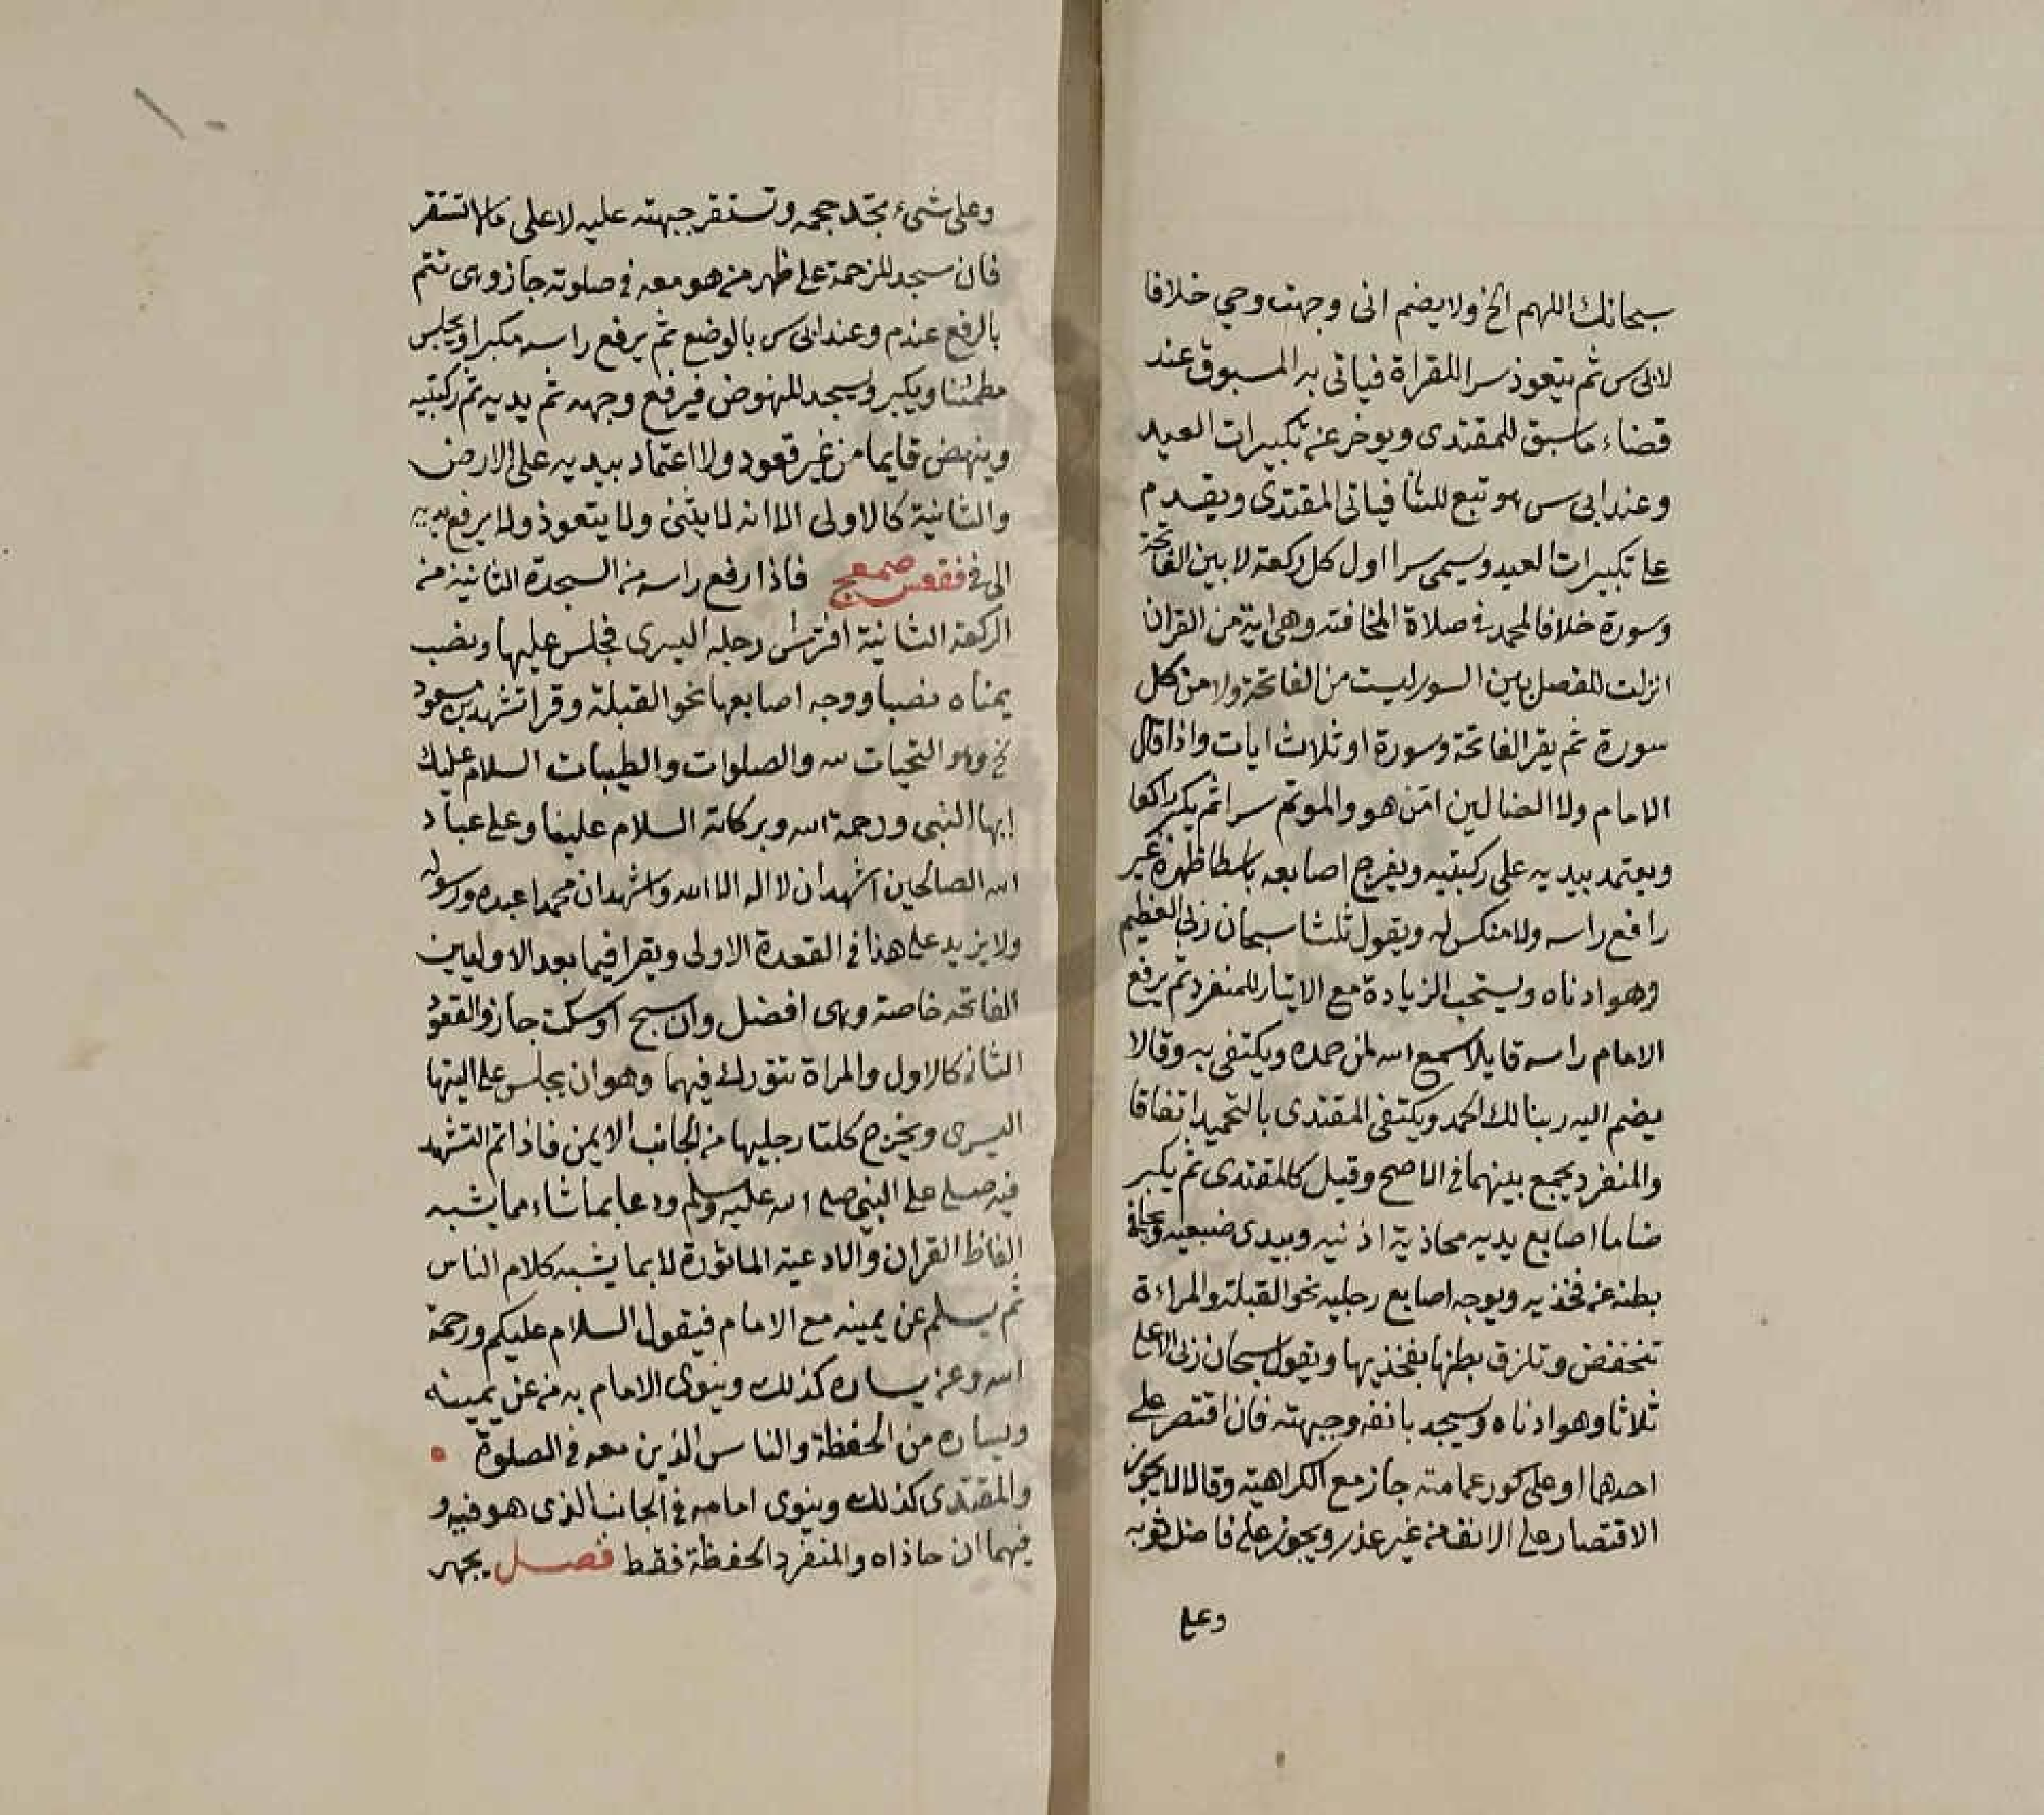 سبحانك اللهم الخ ولا يضم انى وجهت وجهي خلافا
لابى س ثم يتعوذ سرا للقراة فياتى به المسبوق عند
قضاء ما سبق لا المقتدى ويوخر عن تكبيرات العيد
وعند ابى س هو تبع للثنا فياتى المقتدى ويقدم
على تكبيرات العيد ويسمى سرا اول كل ركعة لا بين الفاتحة
وسورة خلافا لمحمد في صلاة المخافتة وهى اية من القران
انزلت للفصل بين السور ليست من الفاتحة ولا من كل
سورة ثم يقرا الفاتحة وسورة او ثلاث ايات واذا قال
الامام ولا الضالين امن هو والموتم سرا ثم يكبر راكعا
ويعتمد بيديه على ركبتيه ويفرج اصابعه باسطا ظهره غير
رافع راسه ولا منكس له ويقول ثلثا سبحان ربى العظيم
وهو ادناه ويستحب الزيادة مع الايتار للمنفرد ثم يرفع
الامام راسه قايلا سمع الله لمن حمده ويكتفى به وقالا
يضم اليه ربنا لك الحمد ويكتفى المقتدى بالتحميد اتفاقا
والمنفرد يجمع بينهما في الاصح وقيل كالمقتدى ثم يكبر
ضاما اصابع يديه محاذية اذنيه ويبدى ضبعيه ويجافى
بطنه عن فخذيه ويوجه اصابع رجليه نحو القبلة والمراءة
تنخفض وتلزق بطنها بفخذيها ويقول سبحان ربى الاعلى
ثلاثا وهو ادناه ويسجد بانفه وجبهته فان اقتصر على
احدهما او على كور عمامته جاز مع الكراهية وقالا لا يجوز
الاقتصار على الانف من غير عذر ويجوز على فاضل ثوبه
وعلى
وعلى شىء يجد حجمه وتستقر جبهته عليه لا على ما لا تستقر
فان سجد للزحمة على ظهر من هو معه في صلوته جاز وهى تتم
بالرفع عند م وعند ابى س بالوضع ثم يرفع راسه مكبرا ويجلس
مطمئنا ويكبر ويسجد للنهوض فيرفع وجهه ثم يديه ثم ركبتيه
وينهض قايما من غير قعود ولا اعتماد بيديه على الارض
والثانية كالاولى الا انه لا يثنى ولا يتعوذ ولا يرفع يديه
الا في فقعس صمعج فاذا رفع راسه من السجدة الثانية من
الركعة الثانية افترش رجله اليسرى فجلس عليها ونصب
يمناه نصبا ووجه اصابعها نحو القبلة وقرا تشهد بن مسعود
وهو التحيات لله والصلوات والطيبات السلام عليك
ايها النبى ورحمة الله وبركاته السلام علينا وعلى عباد
الله الصالحين اشهد ان لا اله الا الله واشهد ان محمدا عبده ورسوله
ولا يزيد على هذا في القعدة الاولى ويقرا فيما بعد الاوليين
الفاتحة خاصة وهى افضل وان سبح او سكت جاز والقعود
الثانى كالاول والمراة تتورك فيهما وهو ان يجلس على اليتها
اليسرى ويخرج كلتا رجليها من الجانب الايمن فاذا تم التشهد
فيه صلى على النبى صلى الله عليه وسلم ودعا بما شاء مما يشبه
الفاظ القران والادعية الماثورة لا بما يشبه كلام الناس
ثم يسلم عن يمينه مع الامام فيقول السلام عليكم ورحمة
الله وعن يساره كذلك وينوى الامام به من عن يمينه
ويساره من الحفظة والناس الذين معه في الصلوة
والمقتدى كذلك وينوى امامه في الجانب الذى هو فيه و
فيهما ان حاذاه والمنفرد الحفظة فقط فصل يجهر